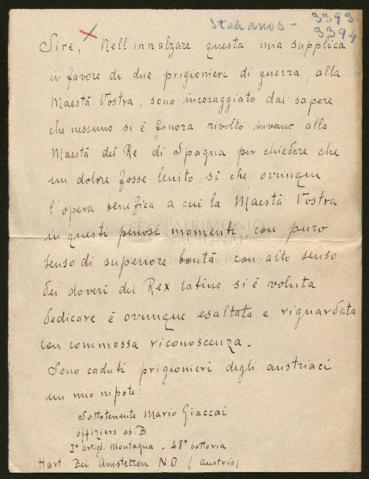 Italianos - 3393
3394
Sire, Nell'innalzare questa mia supplica
in favore di due prigionieri di guerra, alla
Maestà Vostra, sono incoraggiato dal sapere
che nessuno si è finora rivolto invano alla
Maestà del Re di Spagna per chiedere che
un dolore fosse lenito sì che ovunque
l'opera benefica a cui la Maestà Vostra
in questi penosi momenti con puro
senso di superiore bontà con alto senso
dei doveri del Rex latino si è voluta
dedicare è ovunque esaltata e riguardata
con commossa riconoscenza.
Sono caduti prigionieri degli austriaci
un mio nipote:
Sottotenente Mario Giaccai
offiziers ab. B
I° artigl. Montagna - 48ª batteria
Hart. Bei Amstetten N.O (Austria)